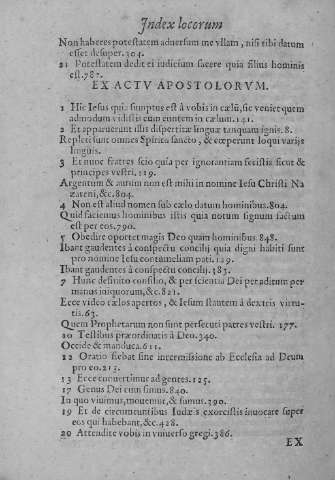 Index locorum
Non haberes potestatem aduersum me vllam, nisi tibi datum
esset desuper. 304.
21 Potestatem dedit ei iudicium facere quia filius hominis
est. 782.
EX ACTV APOSTOLORVM.
1 Hic Iesus qui assumptus est à vobis in cælũ, sic veniet quem
admodum vidistis eum euntem in cælum. 141.
2 Et apparuerunt illis dispertitæ linguæ tanquam ignis. 8.
Repleti sunt omnes Spiritu sancto, & cœperunt loqui varijs
linguis.
3 Et nunc fratres scio quia per ignorantiam fecistis sicut &
principes vestri. 119.
Argentum & aurum non est mihi in nomine Iesu Christi Na
zareni, &c. 804.
4 Non est aliud nomen sub cælo datum hominibus. 804.
Quid faciemus hominibus istis quia notum signum factum
est per eos. 790.
5 Obedire oportet magis Deo quam hominibus. 848.
Ibant gaudentes à conspectu concilij quia digni habiti sunt
pro nomine Iesu contumeliam pati. 129.
Ibant gaudentes à conspectu concilij. 383.
7 Hunc definito consilio, & per scientia Dei peraditum per
manus iniquorum, &c. 821.
Ecce video cælos apertos, & Iesum stantem à dextris virtu-
tis. 63.
Quem Prophetarum non sunt persecuti patres vestri. 177.
10 Testibus præordinatis à Deo. 340.
Occide & manduca. 611.
12 Oratio fiebat sine intermissione ab Ecclesia ad Deum
pro eo. 213.
13 Ecce conuertimur ad gentes. 125.
17 Genus Dei cum simus. 840.
In quo viuimus, mouemur, & sumus. 390.
19 Et de circumeuntibus Iudæis exorcistis inuocare super
eos qui habebant, &c. 428.
20 Attendite vobis in vniuerso gregi. 386.
EX